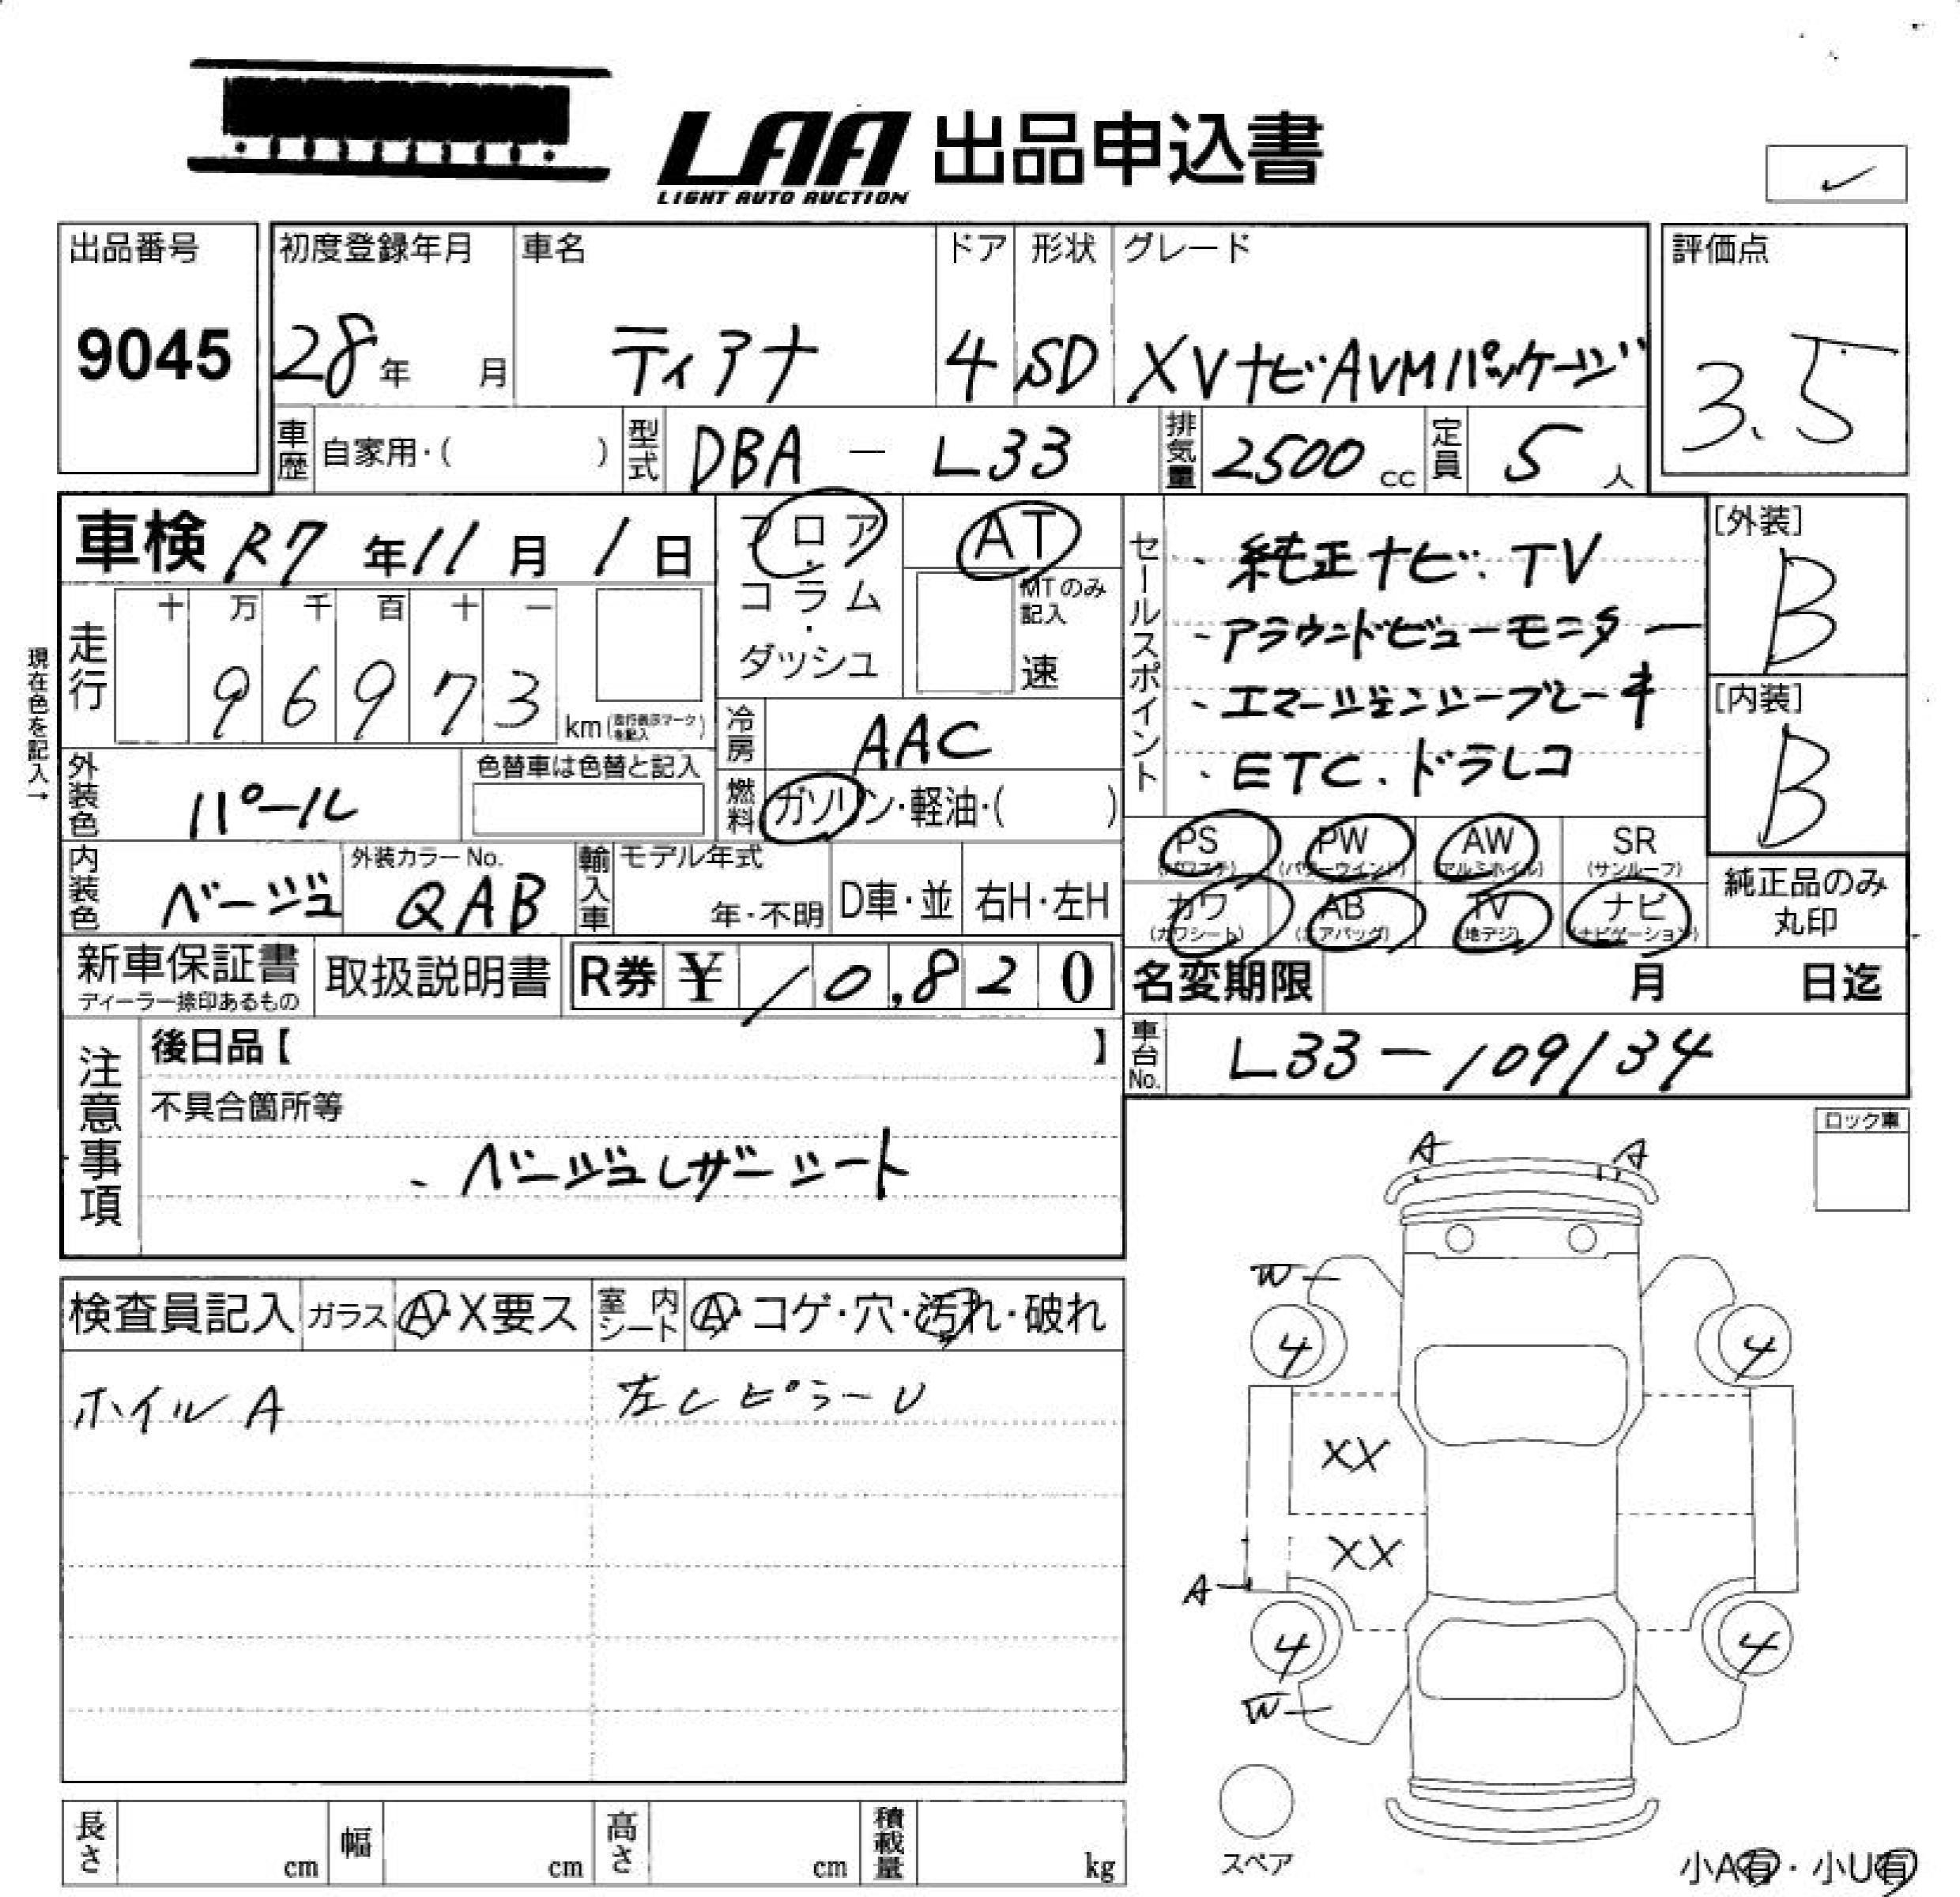 LAA 出品申込書
LIGHT AUTO AUCTION
✓
出品番号
9045
初度登録年月
28年 月
車名
ティアナ
ドア
4
形状
SD
グレード
XVナビAVMパッケージ
評価点
3.5
車歴 自家用・( )
型式 DBA - L33
排気量 2500 cc
定員 5 人
車検 R7年11月1日
フロア・コラム・ダッシュ
AT
MTのみ記入
速
セールスポイント
・純正ナビ.TV
・アラウンドビューモニター
・エマージェンシーブレーキ
・ETC.ドラレコ
[外装]
B
[内装]
B
現在色を記入→
走行
十 万 千 百 十 一
9 6 9 7 3
km(走行表示マークを記入)
冷房 AAC
燃料 ガソリン・軽油・( )
外装色 パール
色替車は色替と記入
内装色 ベージュ
外装カラーNo.
QAB
輸入車
モデル年式
年・不明
D車・並
右H・左H
PS (パワステ)
PW (パワーウインド)
AW (アルミホイル)
SR (サンルーフ)
カワ (カワシート)
AB (エアバッグ)
TV (地デジ)
ナビ (ナビゲーション)
純正品のみ
丸印
新車保証書
ディーラー捺印あるもの
取扱説明書
R券 ¥ 10,820
名変期限 月 日迄
車台No. L33-109134
注意事項
後日品【 】
不具合箇所等
・ベージュレザーシート
ロック車
検査員記入
ガラス A・X要ス
室内シート A・コゲ・穴・汚れ・破れ
ホイルA
左CピラーU
A
A
W
4
4
XX
XX
A
4
4
W
スペア
長さ cm
幅 cm
高さ cm
積載量 kg
小A有・小U有